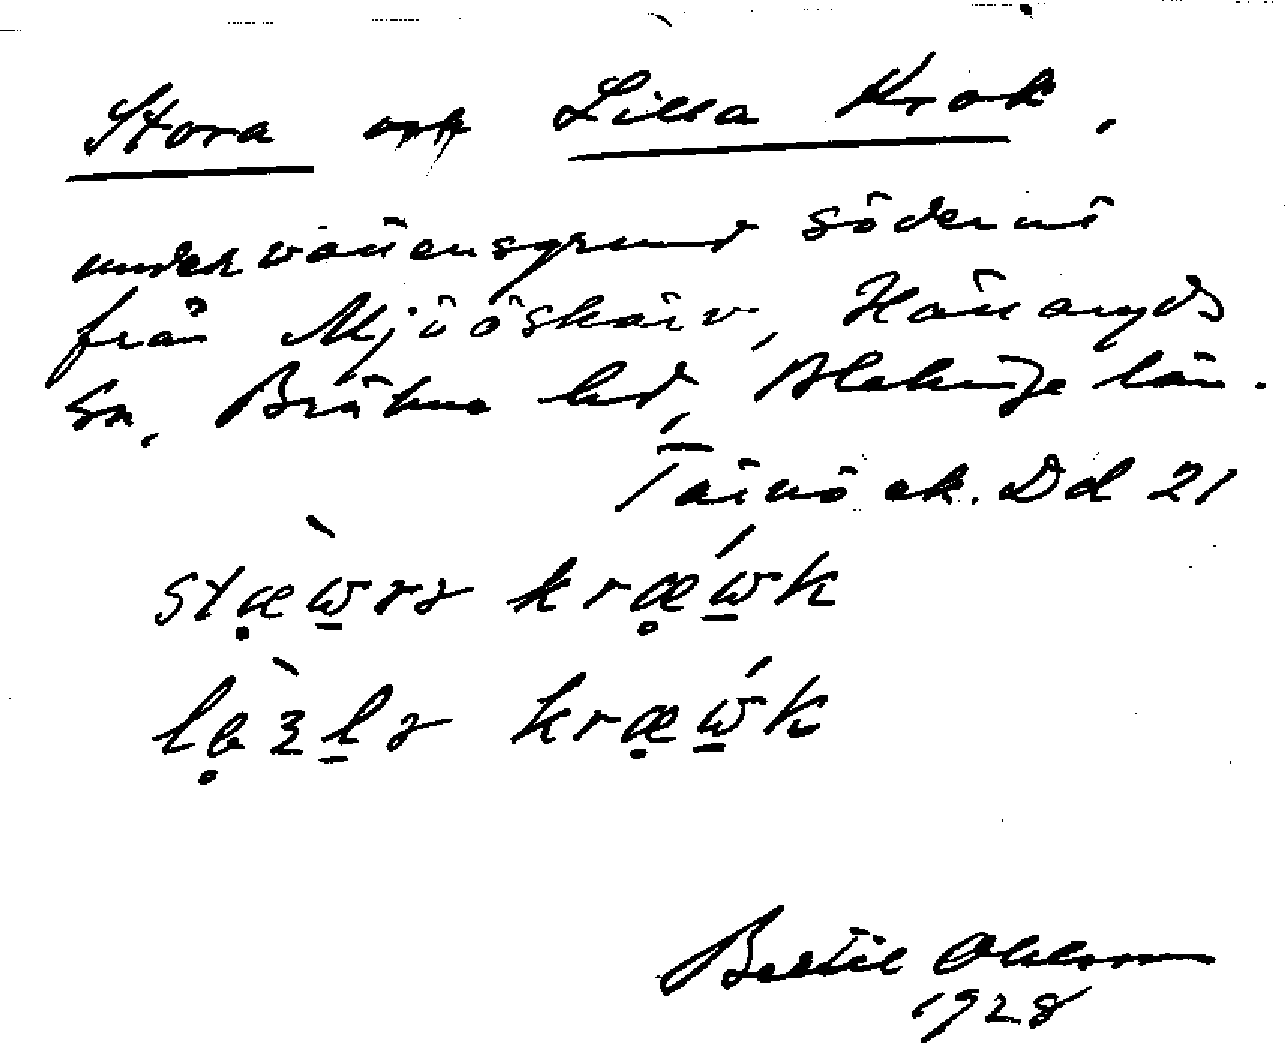 Stora och Lilla Krok,
undervattensgrund söderut
från Mjööskärv, Hällaryds
sn, Bräkne hd, Blekinge län.
Tärnö ek. Bd 21
stæwra kræwk
kræwk
Bertil Ohlsson
1928